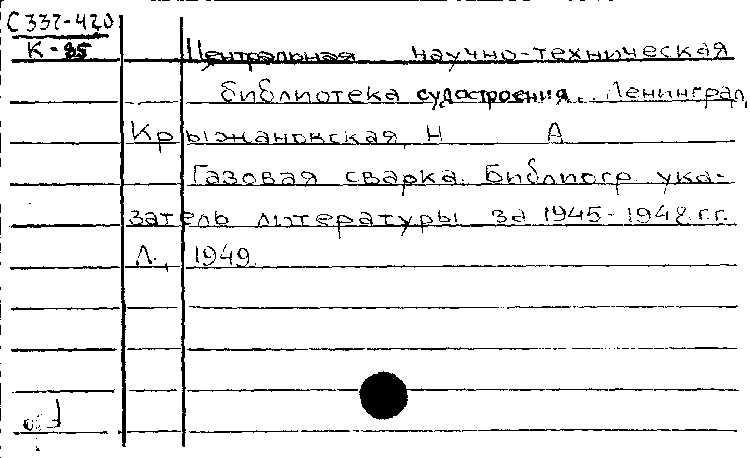 С 337-420
К-85
Центральная научно-техническая
библиотека судостроения. Ленинград,
Крыжановская, Н А
Газовая сварка. Библиогр. ука-
затель литературы за 1945-1948 г.г.
Л., 1949.